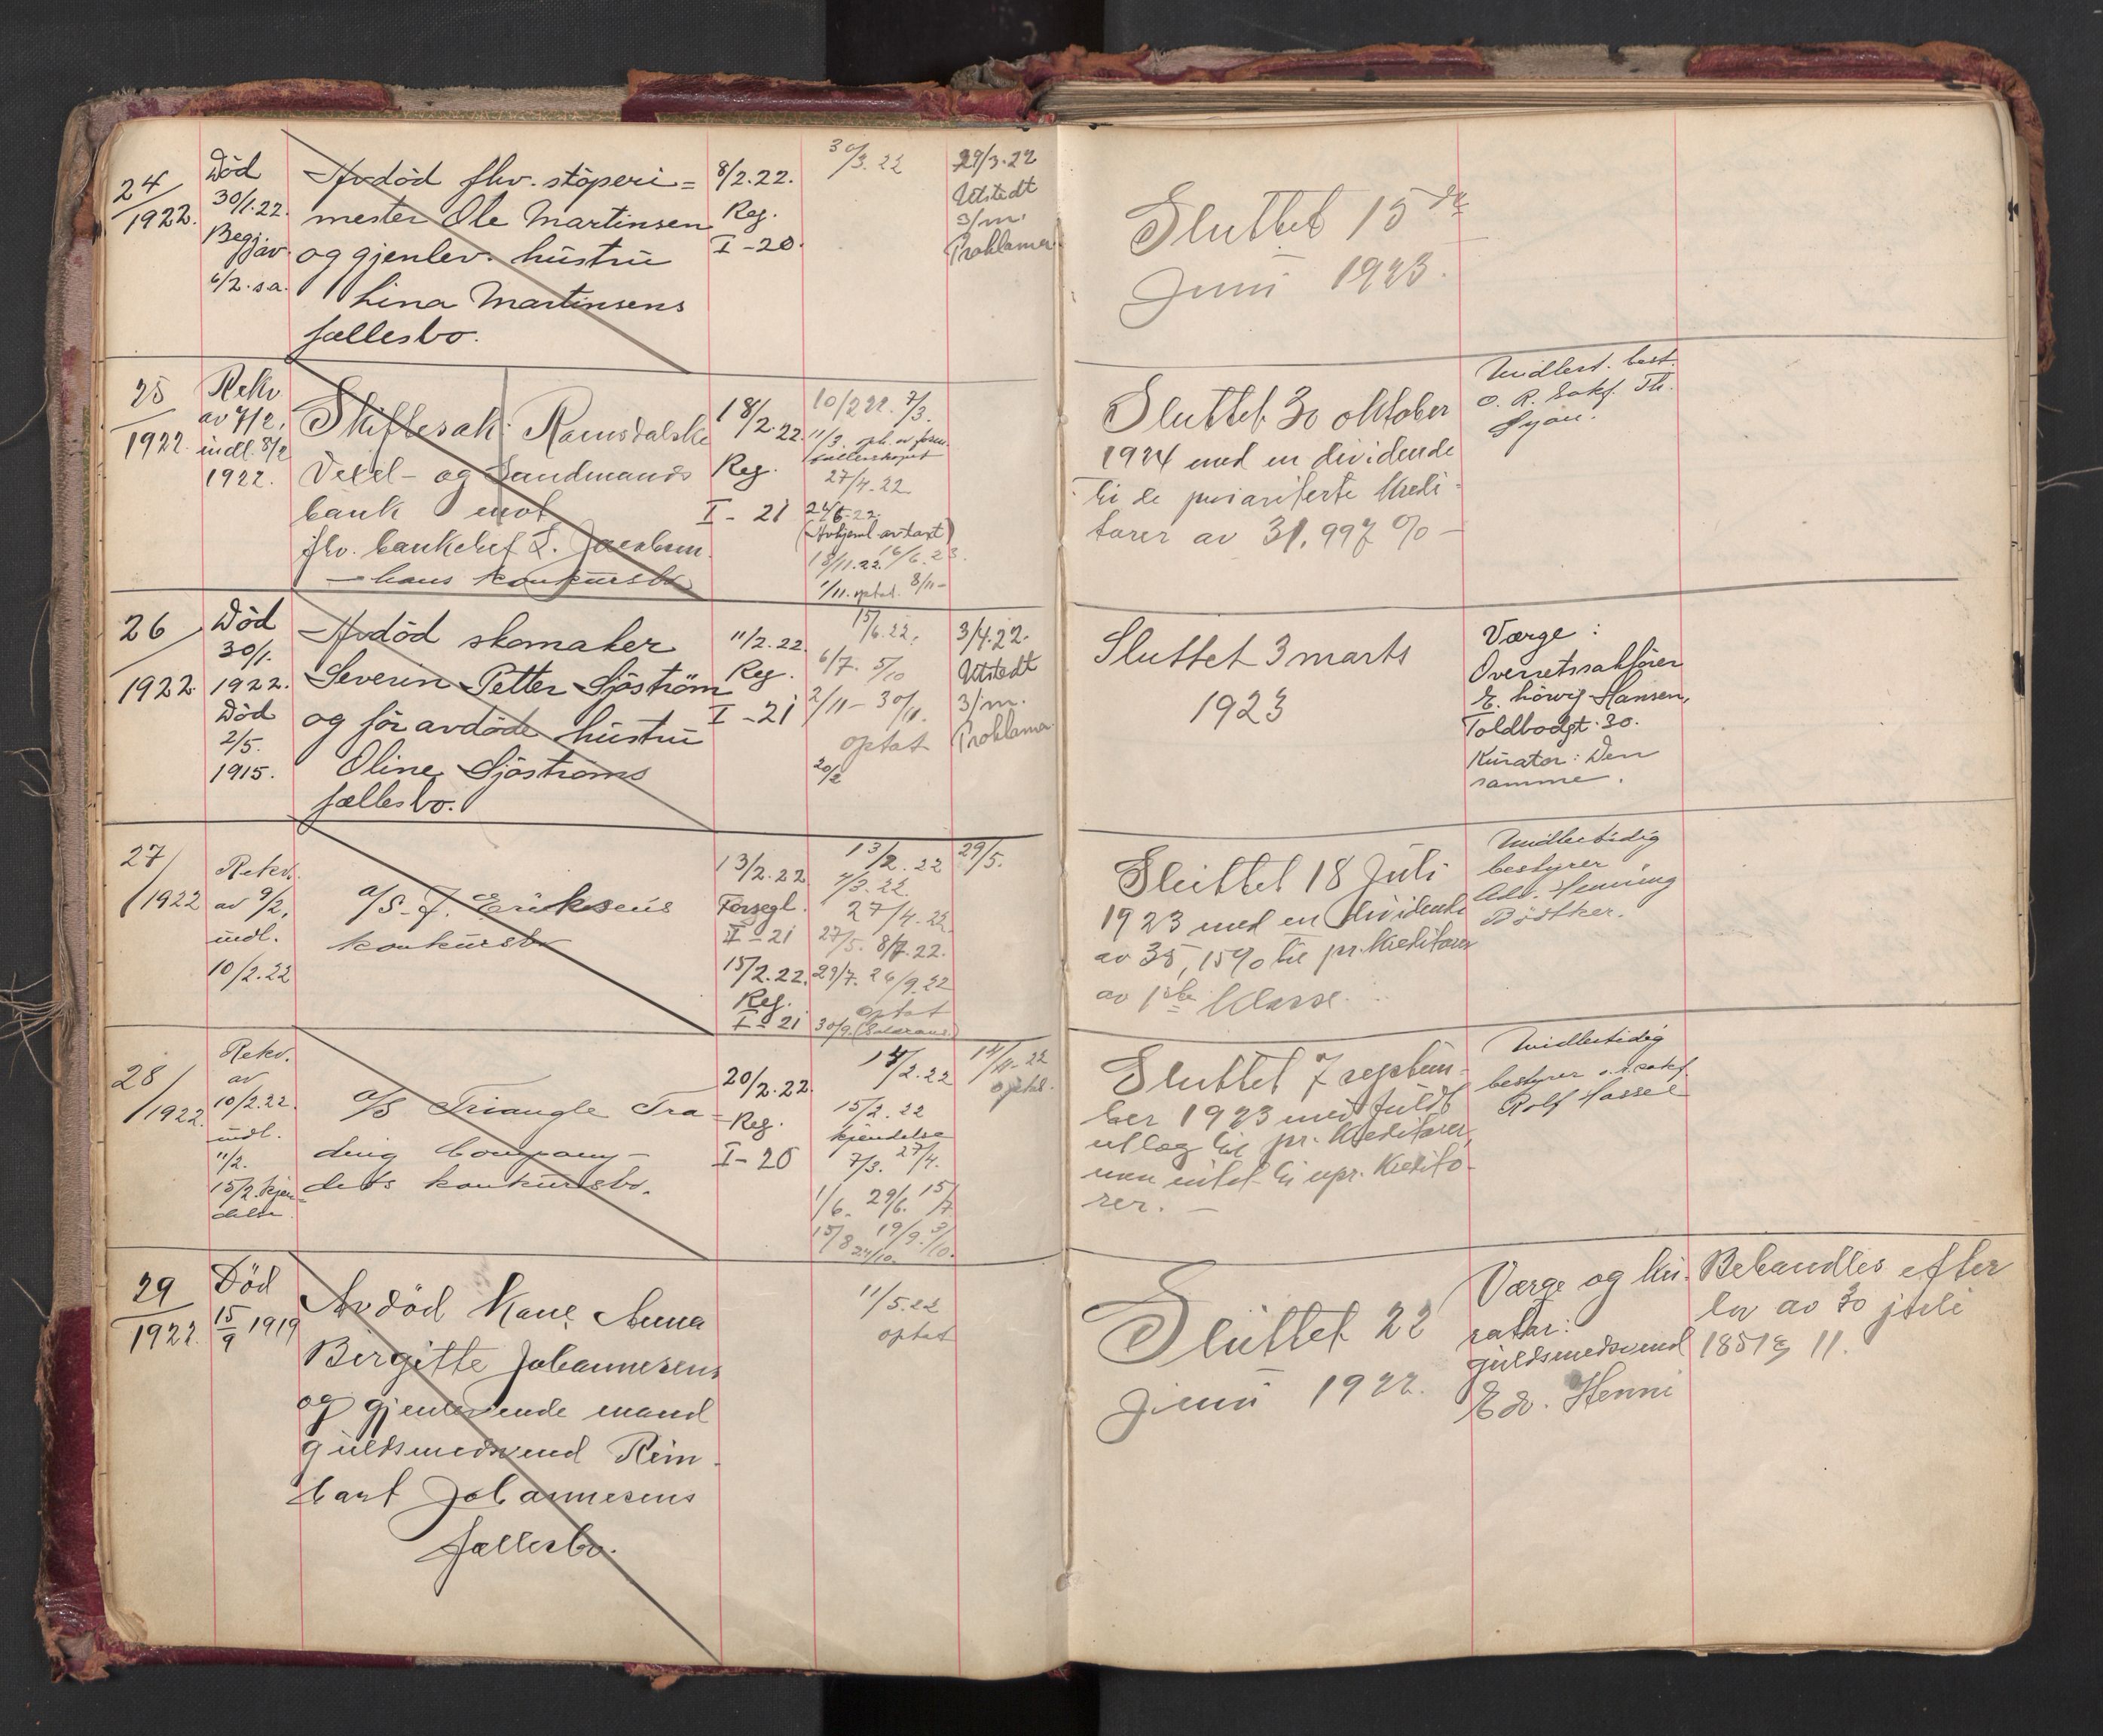 24/1922.
Död
30/1.22.
Begjær.
6/2. s.a.
Avdöd fhv. stöperi=
mester Ole Martinsen
og gjenlev. hustru
Lina Martinsens
fællesbo.
8/2.22.
Reg.
I-20.
30/3.22
29/3.22
Utstedt
3/m.
Proklama
Sluttet 15de
Juni 1923.
25/1922.
Rekv
av 7/2,
indl. 8/2
1922.
Skiftesak: Romsdalske
Vexel- og Landmands
bank mot
fhv. bankchef L. Jacobsen
- hans konkursbo
18/2.22.
Reg.
I-21
10/2 22. 7/3.
27/4.22
18/11.22. 16/6.23.
1/11. optat. 8/11-
Sluttet 30 oktober
1924 med en dividende
til de prioriterte kredi-
torer av 31,997 % -
Midlert. best.
o. R. Sakf. Th.
26/1922.
Död
30/1.
1922.
Död
2/5.
1915.
Avdöd skomaker
Severin Petter Sjöström
og för avdöde hustru
Oline Sjöströms
fællesbo.
11/2.22.
Reg.
I-21
15/6.22.
6/7. 5/10
2/11- 30/11.
optat
20/2
3/4.22.
Utstedt
3/m.
Proklama
Sluttet 3 marts
1923
Værge:
Overretssakförer
E. Lörvig-Hansen,
Toldbodgt. 30.
Kurator: Den
samme.
27/1922
Rekv.
av 9/2,
indl.
10/2.22
a/S. J. Eriksens
konkursbo
13/2.22
Forsegl.
II-21
15/2.22.
Reg.
I-21
13/2.22
7/3.22.
27/4.22
27/5. 8/7.22.
29/7. 26/9.22
optat
30/9.
29/5.
Sluttet 18 Juli
1923 med en dividende
av 35,15% til pr. kreditorer
av 1ste klasse.
Midlertidig
bestyrer
Adv. Henning
Bödtker.
28/1922.
Rekv.
av
10/2.22.
indl.
11/2.
15/2 kjen-
delse.
a/S Triangle Tra-
ding Company-
dets konkursbo.
20/2.22.
Reg.
I-20
14/2.22
15/2.22
kjendelse
7/3. 27/4.
1/6. 29/6. 15/7
15/8 19/9. 3/10.
24/10.
14/11.22
optat.
Sluttet 7 septem-
ber 1923 med fuldt
utlæg til pr. kreditorer,
men intet til upr. kredito-
rer. -
Midlertidig
bestyrer o.r.sakf.
Rolf Hassel
29/1922.
Död
15/9 1919
Avdöd Kone Anna
Birgitte Johannesens
og gjenlevende mand
guldsmedsvend Rein-
hart Johannesens
fællesbo.
11/5.22
optat
Sluttet 22
juni 1922.
Værge og ku-
rator:
guldsmedsvend
Edv. Henni
Behandles efter
lov av 30 juli
1851 § 11.